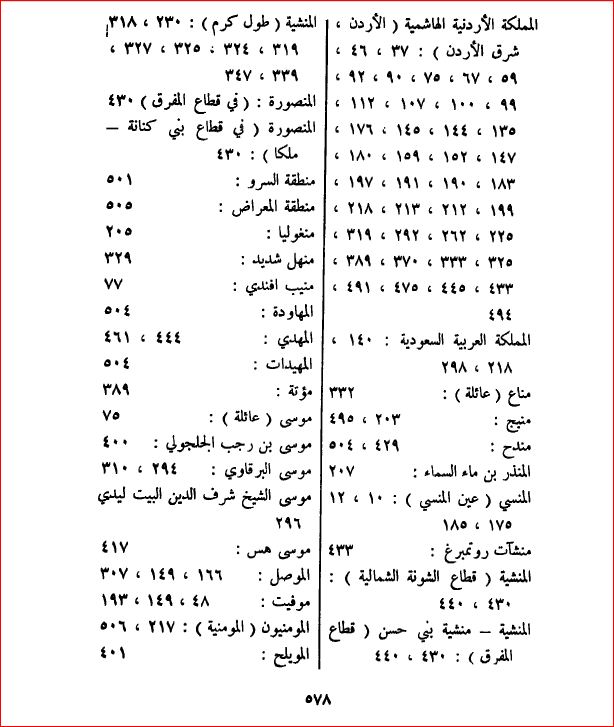 المملكة الأردنية الهاشمية ( الأردن ،
شرق الأردن ) : ٣٧ ، ٤٦ ،
٥٩ ، ٦٧ ، ٧٥ ، ٩٠ ، ٩٢ ،
٩٩ ، ١٠٠ ، ١٠٧ ، ١١٢ ،
١٣٥ ، ١٤٤ ، ١٤٥ ، ١٧٦ ،
١٤٧ ، ١٥٢ ، ١٥٩ ، ١٨٠ ،
١٨٣ ، ١٩٠ ، ١٩١ ، ١٩٧ ،
١٩٩ ، ٢١٢ ، ٢١٣ ، ٢١٨ ،
٢٢٥ ، ٢٦٢ ، ٢٩٢ ، ٣١٩ ،
٣٢٥ ، ٣٣٣ ، ٣٧٠ ، ٣٨٩ ،
٤٣٣ ، ٤٤٥ ، ٤٧٥ ، ٤٩١ ،
٤٩٤
المملكة العربية السعودية : ١٤٠ ،
٢١٨ ، ٢٩٨
مناع ( عائلة ) : ٣٣٢
منبج : ٢٠٣ ، ٤٩٥
مندح : ٤٢٩ ، ٥٠٤
المنذر بن ماء السماء : ٢٠٧
المنسي ( عين المنسي ) : ١٠ ، ١٢
١٧٥ ، ١٨٥
منشآت روتمبرغ : ٤٣٣
المنشية ( قطاع الشونة الشمالية ) :
٤٣٠ ، ٤٤٠
المنشية – منشية بني حسن ( قطاع
المفرق ) : ٤٣٠ ، ٤٤٠
المنشية ( طول كرم ) : ٢٣٠ ، ٣١٨
٣١٩ ، ٣٢٤ ، ٣٢٥ ، ٣٢٧ ،
٣٣٩ ، ٣٤٧
المنصورة : ( في قطاع المفرق ) ٤٣٠
المنصورة ( في قطاع بني كنانة –
ملكا ) : ٤٣٠
منطقة السرو : ٥٠١
منطقة المعراض : ٥٠٥
منغوليا : ٢٠٥
منهل شديد : ٣٢٩
منيب افندي : ٧٧
المهاودة : ٥٠٤
المهدي : ٤٤٤ ، ٤٦١
المهيدات : ٥٠٤
مؤتة : ٣٨٩
موسى ( عائلة ) : ٧٥
موسى بن رجب الجلجولي : ٤٠٠
موسى البرقاوي : ٢٩٤ ، ٣١٠
موسى الشيخ شرف الدين البيت ليدي
٢٩٦
موسى هس : ٤١٧
الموصل : ١٦٦ ، ١٤٩ ، ٣٠٧
موفيت : ٤٨ ، ١٤٩ ، ١٩٣
المومنيون ( المومنية ) : ٢١٧ ، ٥٠٦
المويلح : ٤٠١
٥٧٨